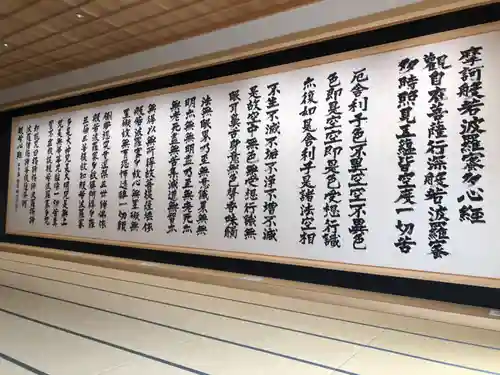 摩訶般若波羅蜜多心経
觀自在菩薩行深般若波羅蜜
多時照見五蘊皆空度一切苦
厄舎利子色不異空空不異色
色即是空空即是色受想行識
亦復如是舎利子是諸法空相
不生不滅不垢不浄不増不減
是故空中無色無受想行識無
眼耳鼻舌身意無色聲香味觸
法無眼界乃至無意識界無無
明亦無無明盡乃至無老死亦
無老死盡無苦集滅道無智亦
無得以無所得故菩提薩埵依
般若波羅蜜多故心無罣礙無
罣礙故無有恐怖遠離一切顛
倒夢想究竟涅槃三世諸佛依
般若波羅蜜多故得阿耨多羅
三藐三菩提故知般若波羅蜜
多是大神呪是大明呪是無上
呪是無等等呪能除一切苦真
實不虚故説般若波羅蜜多呪
即説呪曰羯諦羯諦波羅羯諦
波羅僧羯諦菩提薩婆訶
般若心經